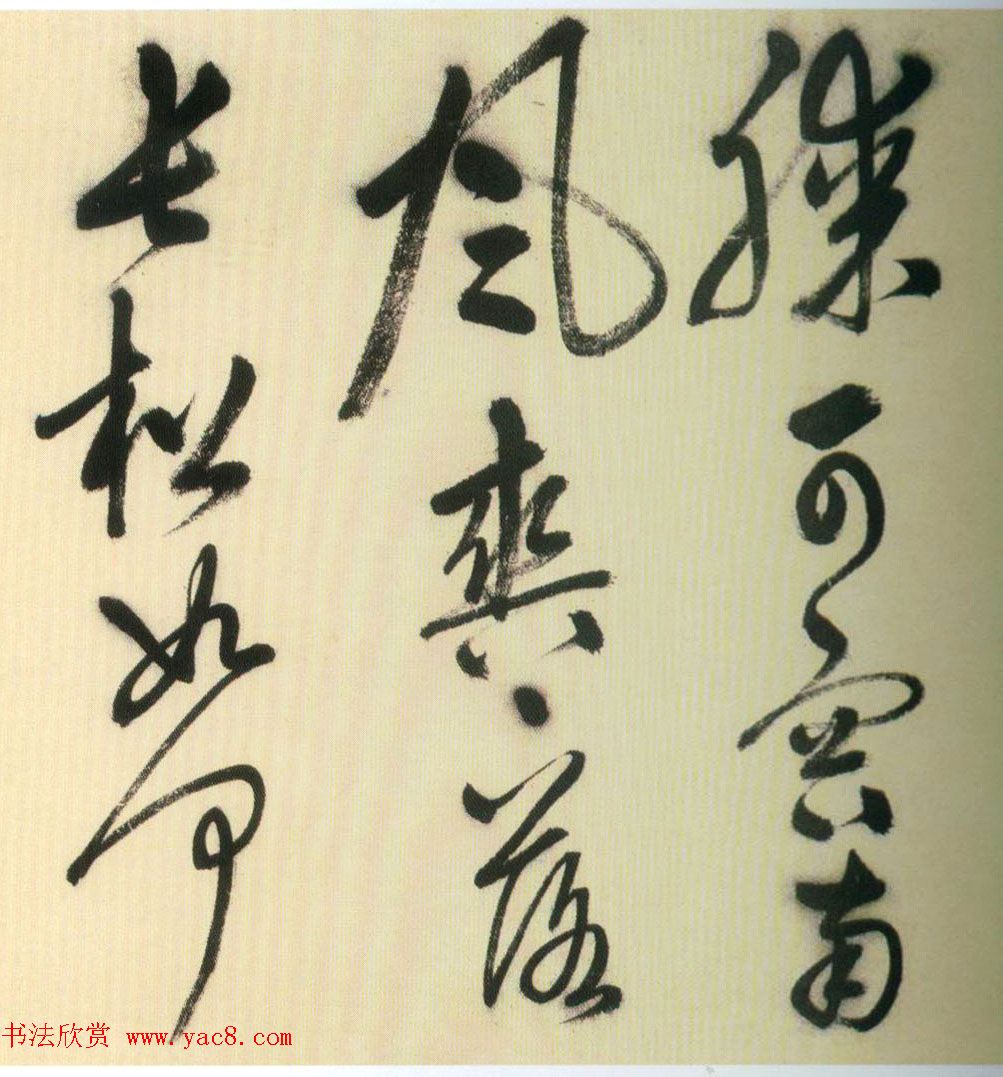 可南
風落
長松如何
书法欣赏 www.yac8.com